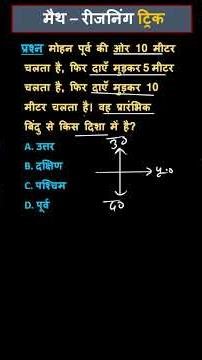 मैथ – रीजनिंग ट्रिक
प्रश्न मोहन पूर्व की ओर 10 मीटर
चलता है, फिर दाएँ मुड़कर 5 मीटर
चलता है, फिर दाएँ मुड़कर 10
मीटर चलता है। वह प्रारंभिक
बिंदु से किस दिशा में है?
A. उत्तर
B. दक्षिण
C. पश्चिम
D. पूर्व
उ०
पू०
द०